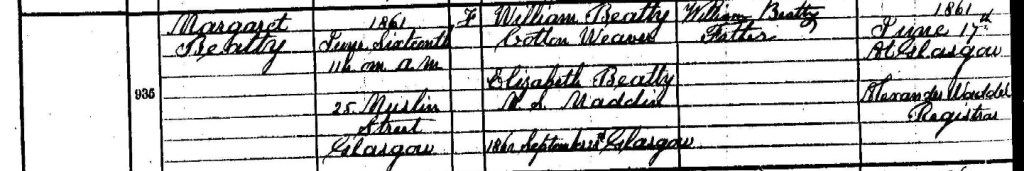 Margaret 1861 F William Beatty William Beatty 1861
Beatty June Sixteenth Cotton Weaver Father June 17th
11h m a.m. At Glasgow
Elizabeth Beatty
935 25 Muslin M.S. Maddin Alexander Waddel
Street Registrar
Glasgow September Glasgow